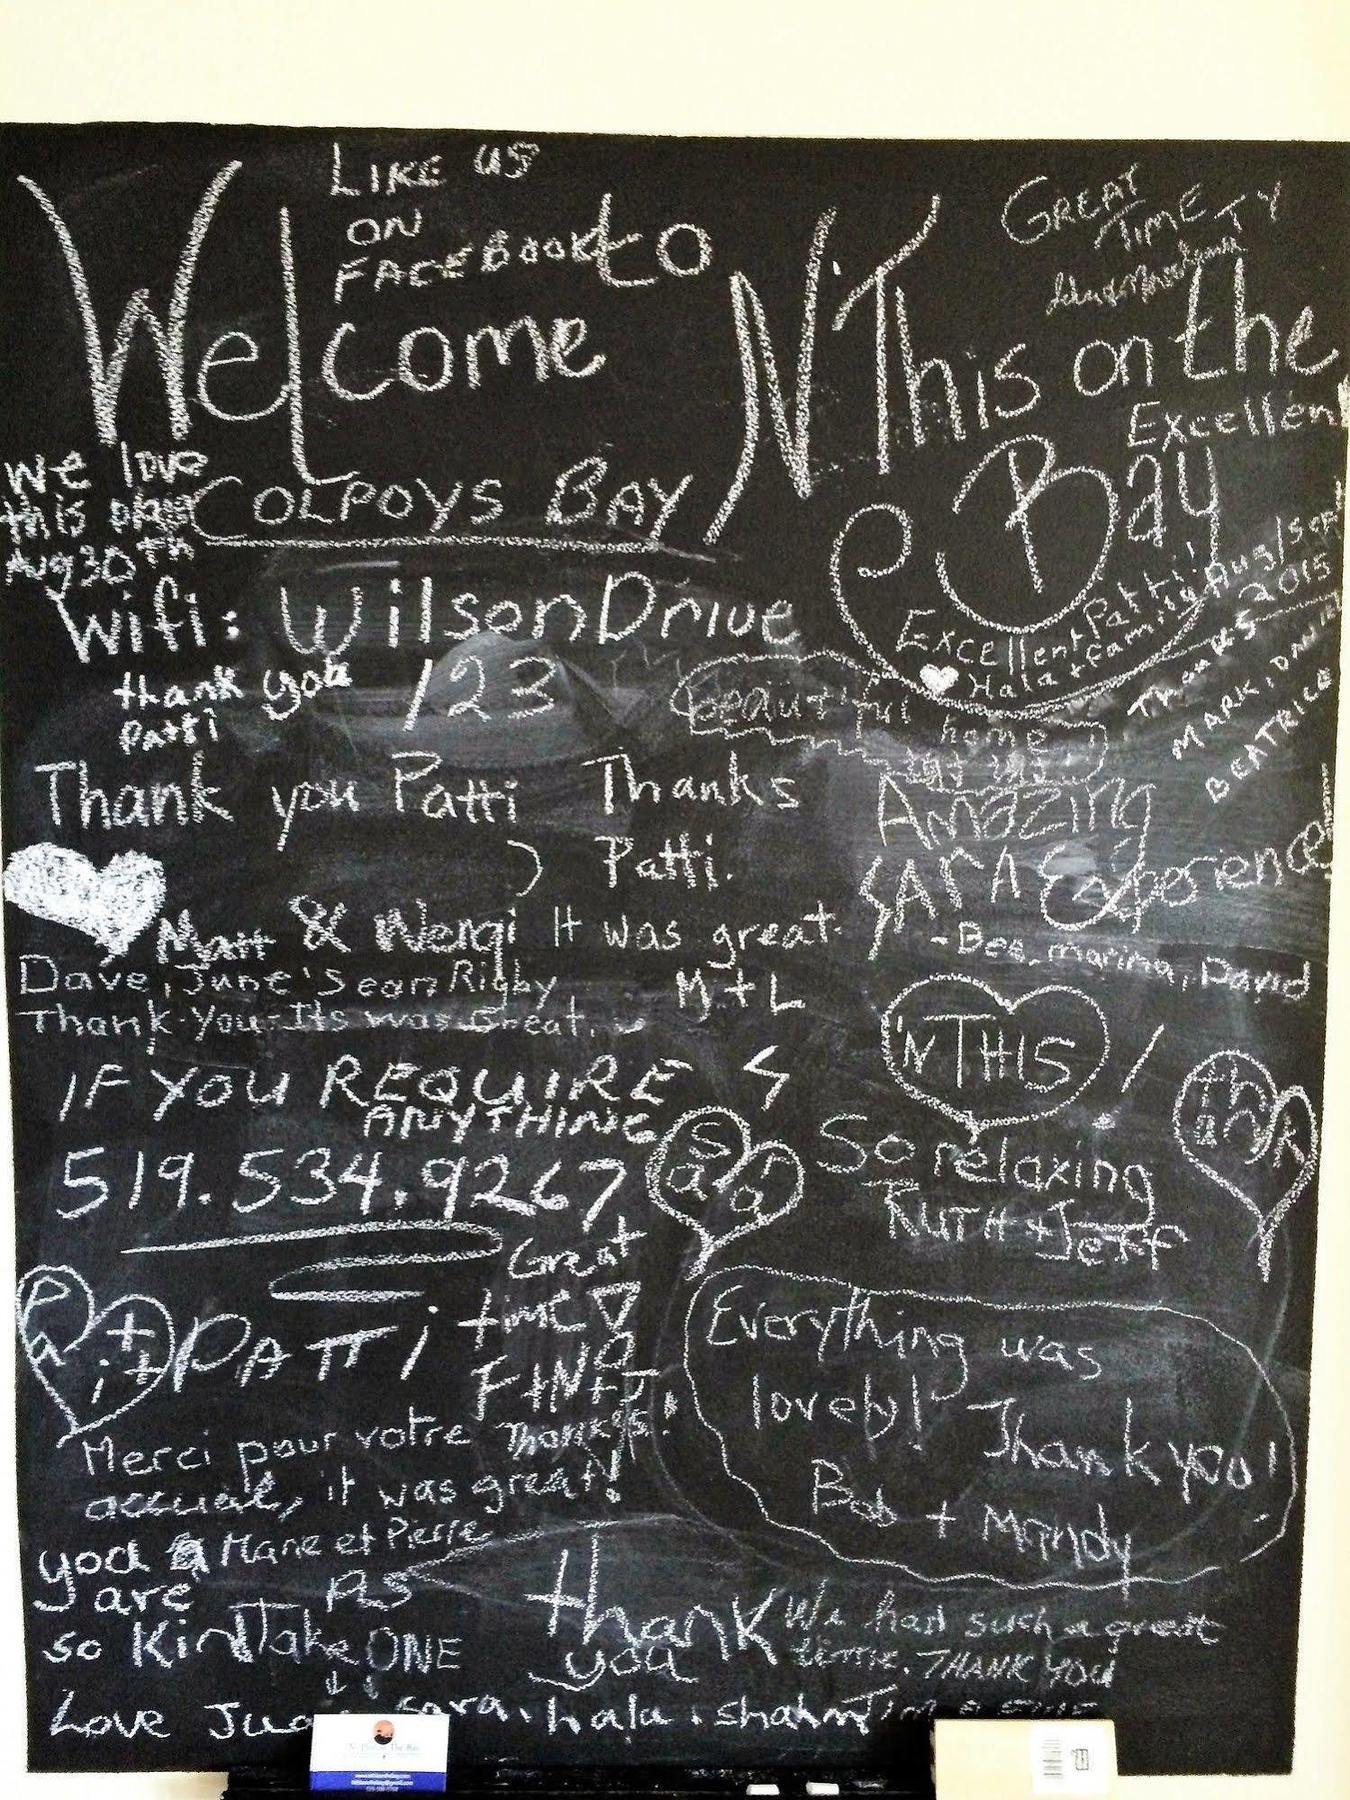 LIKE US
ON
FACEBOOK
Welcome to
N'This on the
Bay
GREAT
TIME TY
Excellent
COLPOYS BAY
we love
this place
Aug 30th
Wifi: WilsonDrive
123
Excellent Patti!
Hala + family
Aug/Sept
2015
Thanks
MARK, DAVID
BEATRICE
thank you
Patti
Beautiful
home
Thank you Patti
Thanks
Patti.
Amazing
SARA Experience!
- Bea, marina, David
Matt & Wenqi
It was great
M + L
Dave, June's Sean Rigby
Thank-You-Its was Great.
'N THIS
thank
IF YOU REQUIRE
ANYTHING
519.534.9267
Sara
So relaxing
RUTH + Jeff
Great
time
Patti
PATTi
Thanks!
Everything was
lovely! Thank you!
Bob + Mandy
Merci pour votre
accueil, it was great!
Marie et Pierre
you
are
so Kind
PLS
Take ONE
thank
you
We had such a great
time. THANK YOU
Love
sara. hala.